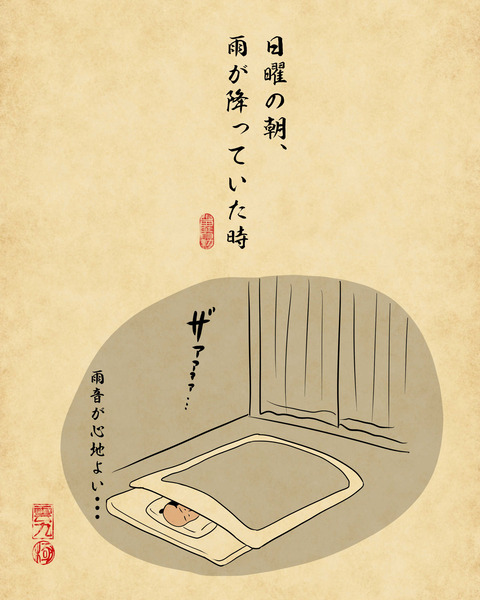 日曜の朝、
雨が降っていた時
ザァァァァ…
雨音が心地よい・・・